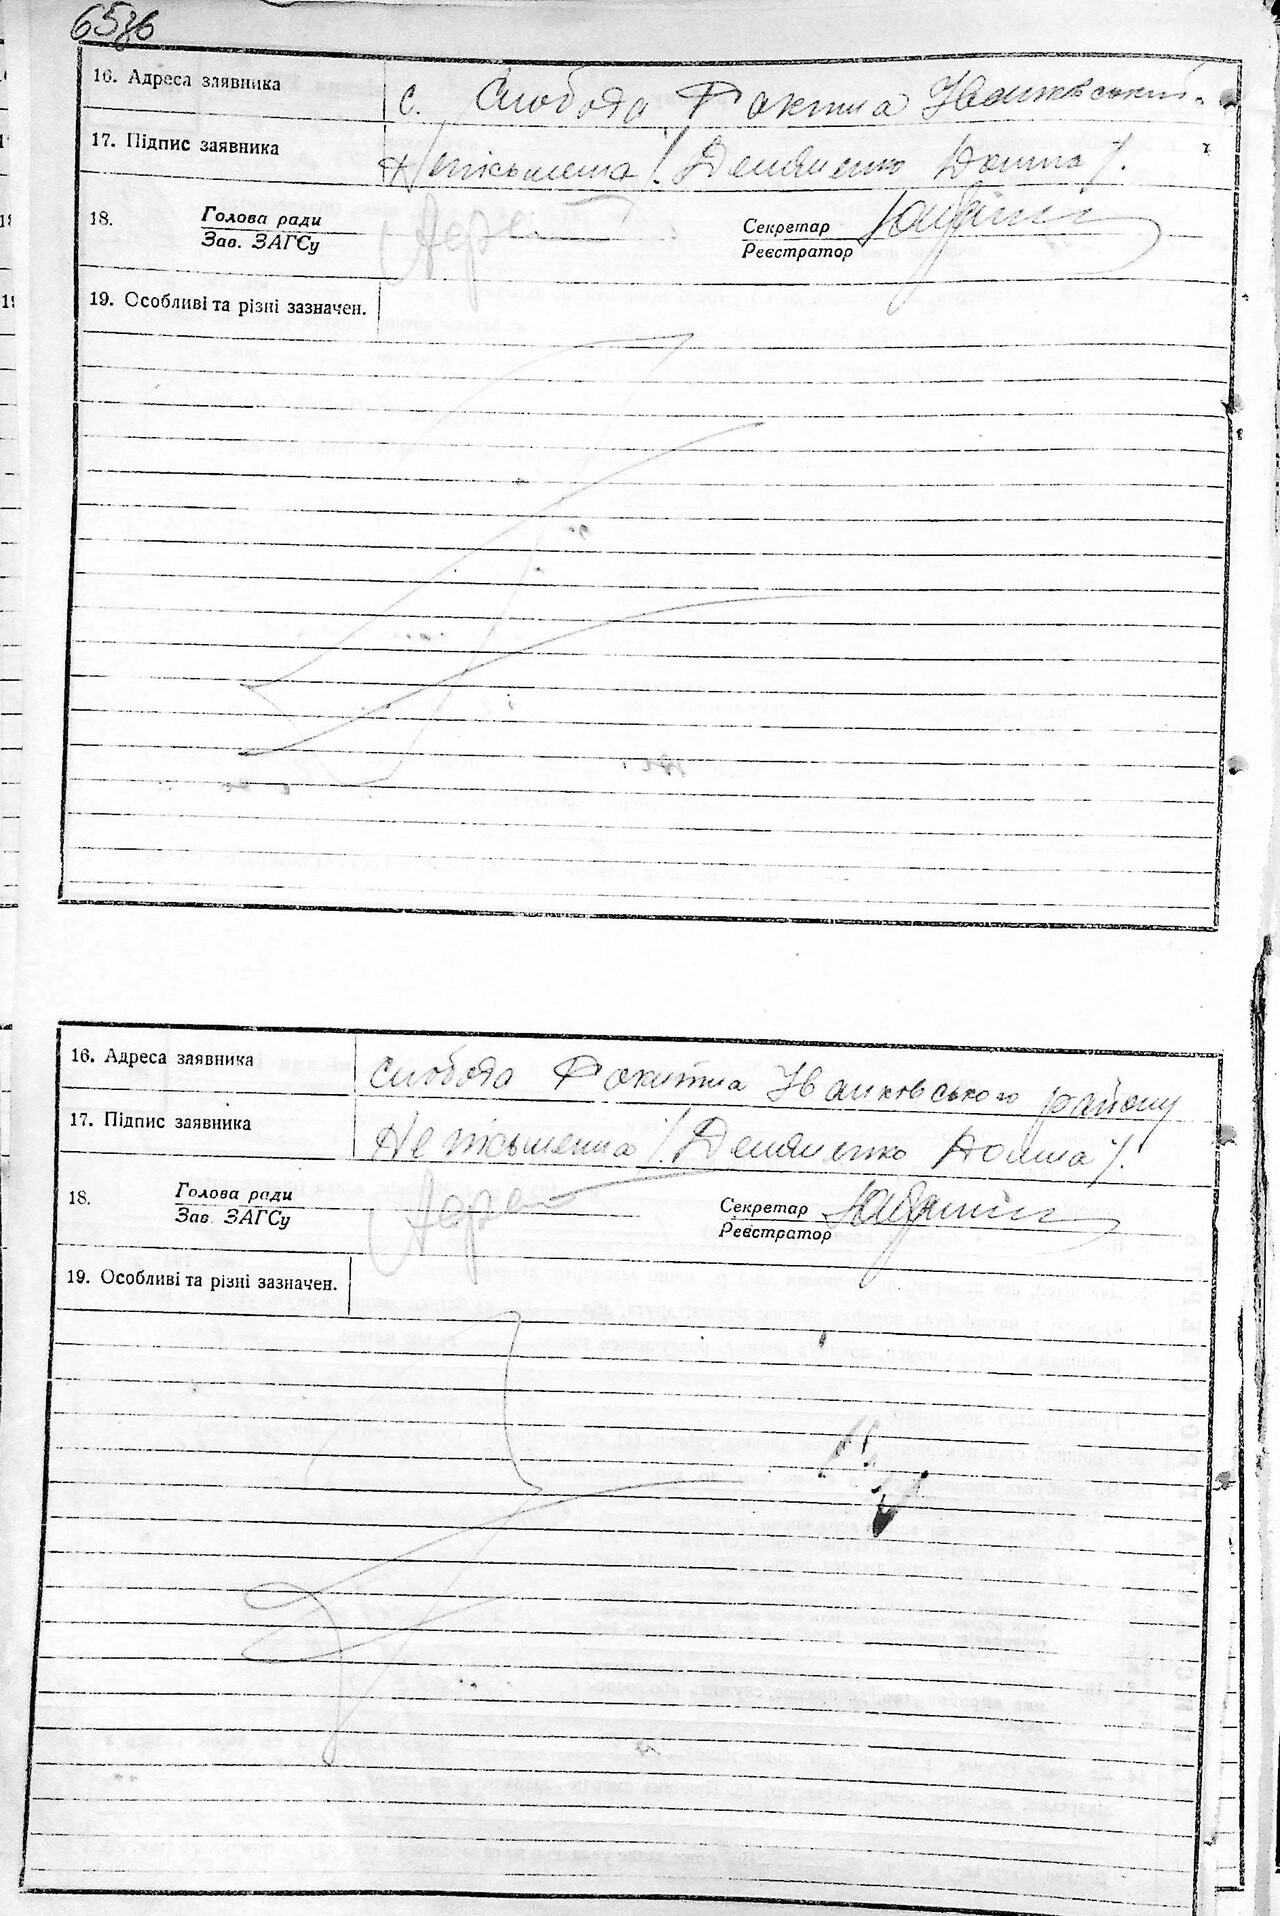 65зв
16. Адреса заявника с. Слобода Ракитна Іванківський.
17. Підпис заявника Неписьменна /. Демяненко Домна /.
18. Голова ради Секретар
Зав. ЗАГСу Реєстратор
19. Особливі та різні зазначен.
16. Адреса заявника Слобода Ракитна Іванковського району
17. Підпис заявника Не письменна /. Демяненко Домна /.
18. Голова ради Секретар
Зав. ЗАГСу Реєстратор
19. Особливі та різні зазначен.